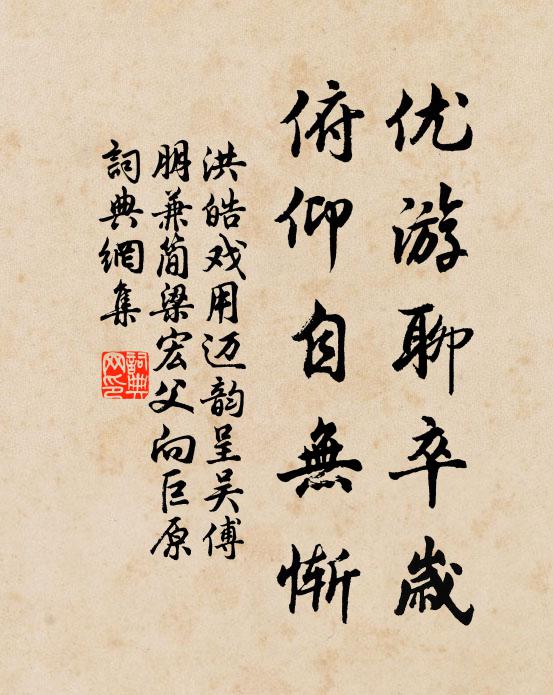 优游聊卒岁
俯仰自無惭
洪皓戏用迈韵呈吴傅
朋兼简梁宏父向巨原
詞典網集
詞典網印